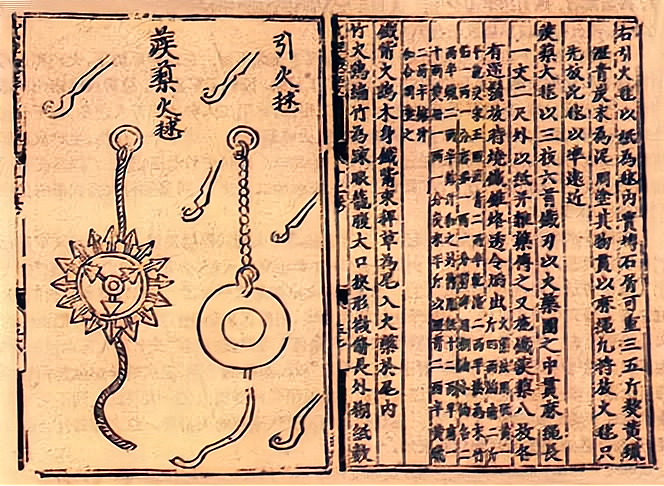 右引火毬以紙為毬內實塼石屑可重三五斤熬黃蠟
瀝青炭末為泥周塗其物貫以麻繩凡將放火毬只
先放此毬以準遠近
蒺蔾火毬以三枝六首鐵刃以火藥團之中貫麻繩長
一丈二尺外以紙并雜藥傅之又施鐵蒺蔾八枚各
有逆鬚放時燒鐵錐烙透令焰出火藥法用硫黃一
斤四兩焰硝二斤
半麄炭末五兩瀝青二兩半乾漆二兩半搗為末竹
茹一兩一分麻茹一兩一分剪碎用桐油小油各二
兩半蠟二兩半鎔汁和之外傅用紙十二兩半麻一
十兩黃丹一兩一分炭末半斤以瀝青二兩半黃蠟
二兩半鎔汁
和合周塗之
鐵觜火鷂木身鐵觜束稈草為尾入火藥於尾內
竹火鷂編竹為疎眼籠腹大口狹形微脩長外糊紙數
引火毬
蒺蔾火毬